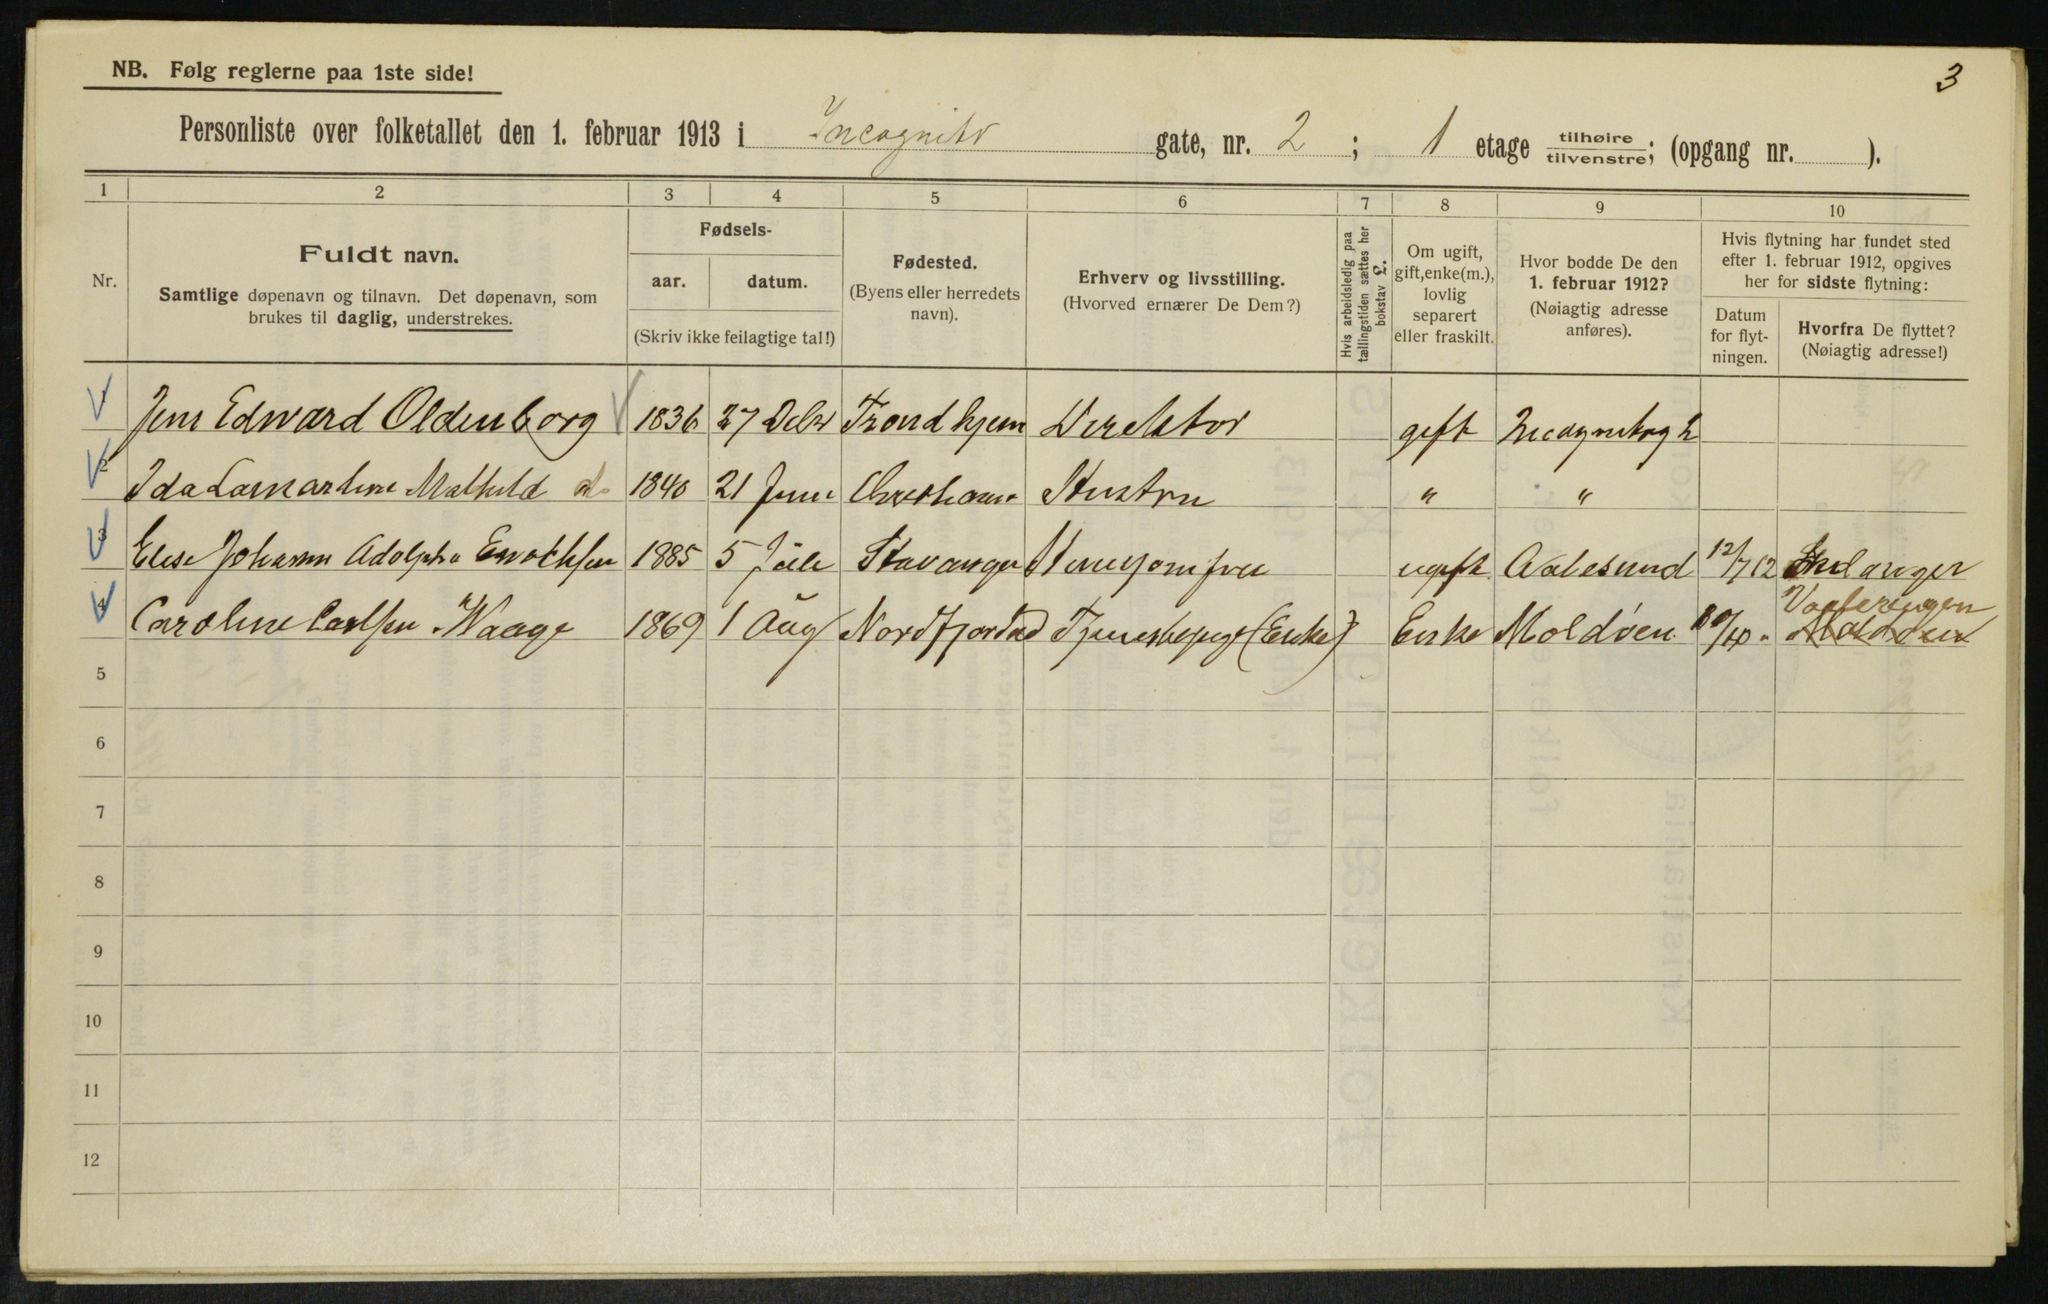 NB. Følg reglerne paa 1ste side!
3
Personliste over folketallet den 1. februar 1913 i Incognito gate, nr. 2 ; 1 etage tilhøire tilvenstre; (opgang nr. ).
1 2 3 4 5 6 7 8 9 10
Nr.
Fuldt navn.
Samtlige døpenavn og tilnavn. Det døpenavn, som
brukes til daglig, understrekes.
Fødsels-
aar. datum.
(Skriv ikke feilagtige tal!)
Fødested.
(Byens eller herredets
navn).
Erhverv og livsstilling.
(Hvorved ernærer De Dem?)
Hvis arbeidsledig paa
tællingstiden sættes her
bokstav L.
Om ugift,
gift, enke(m.),
lovlig
separert
eller fraskilt.
Hvor bodde De den
1. februar 1912?
(Nøiagtig adresse
anføres).
Hvis flytning har fundet sted
efter 1. februar 1912, opgives
her for sidste flytning:
Datum
for flyt-
ningen.
Hvorfra De flyttet?
(Nøiagtig adresse!)
1 Jens Edward Oldenborg 1836 27 Trondhjem Direktør gift Incognitog 2
2 Ida Lamartine Mathild do 1840 21 Juni Christiania Hustru " "
3 Elise Johanne Adolpha Enochsen 1885 5 Juli Stavanger ugift Aalesund 12/7 12
4 Caroline Carlsen Waage 1869 1 Aug Nordfjordeid (Enke) Enke Moldöen "
5
6
7
8
9
10
11
12